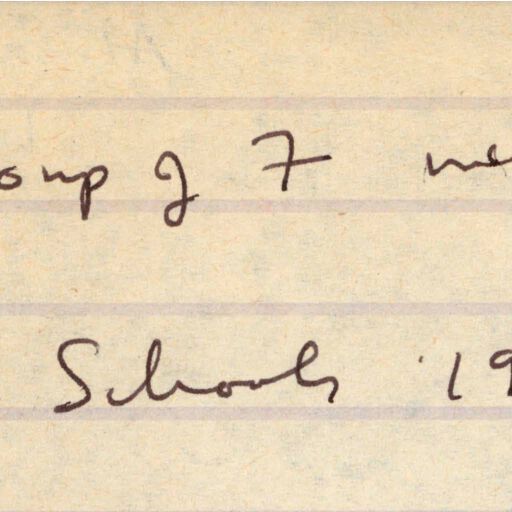 oup of 7 me
Schools 19